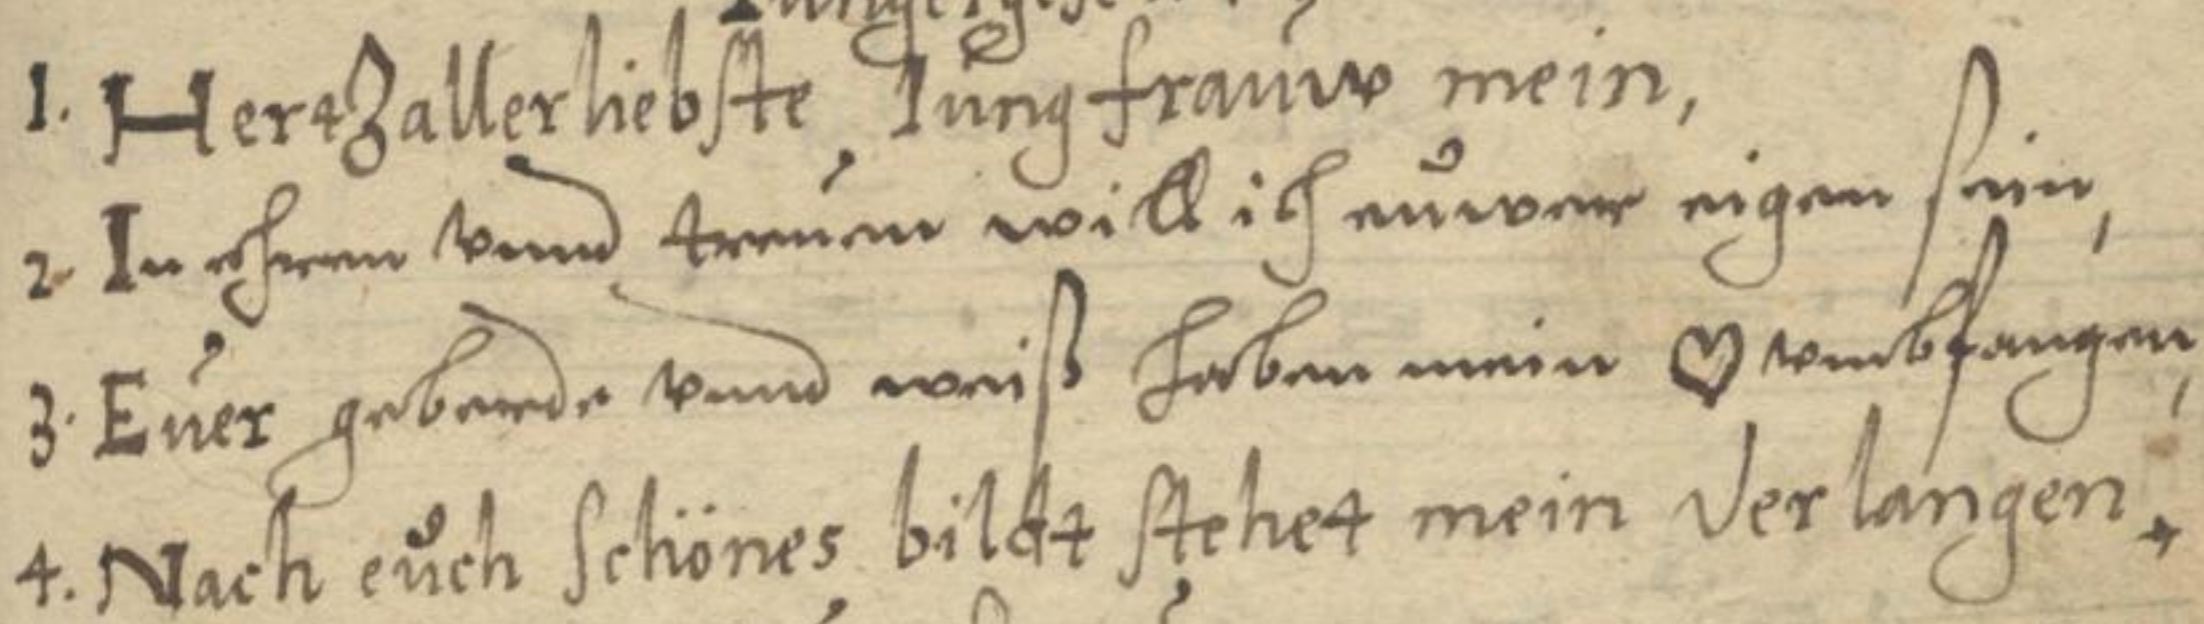 1. Hertzallerliebste Jungfrauw mein,
2. In ehren vnnd treuen will ich euwer eigen sein,
3. Euer geberde vnnd weiß haben mein ♡ vmbfangen,
4. Nach euch schönes bildt stehet mein Verlangen.